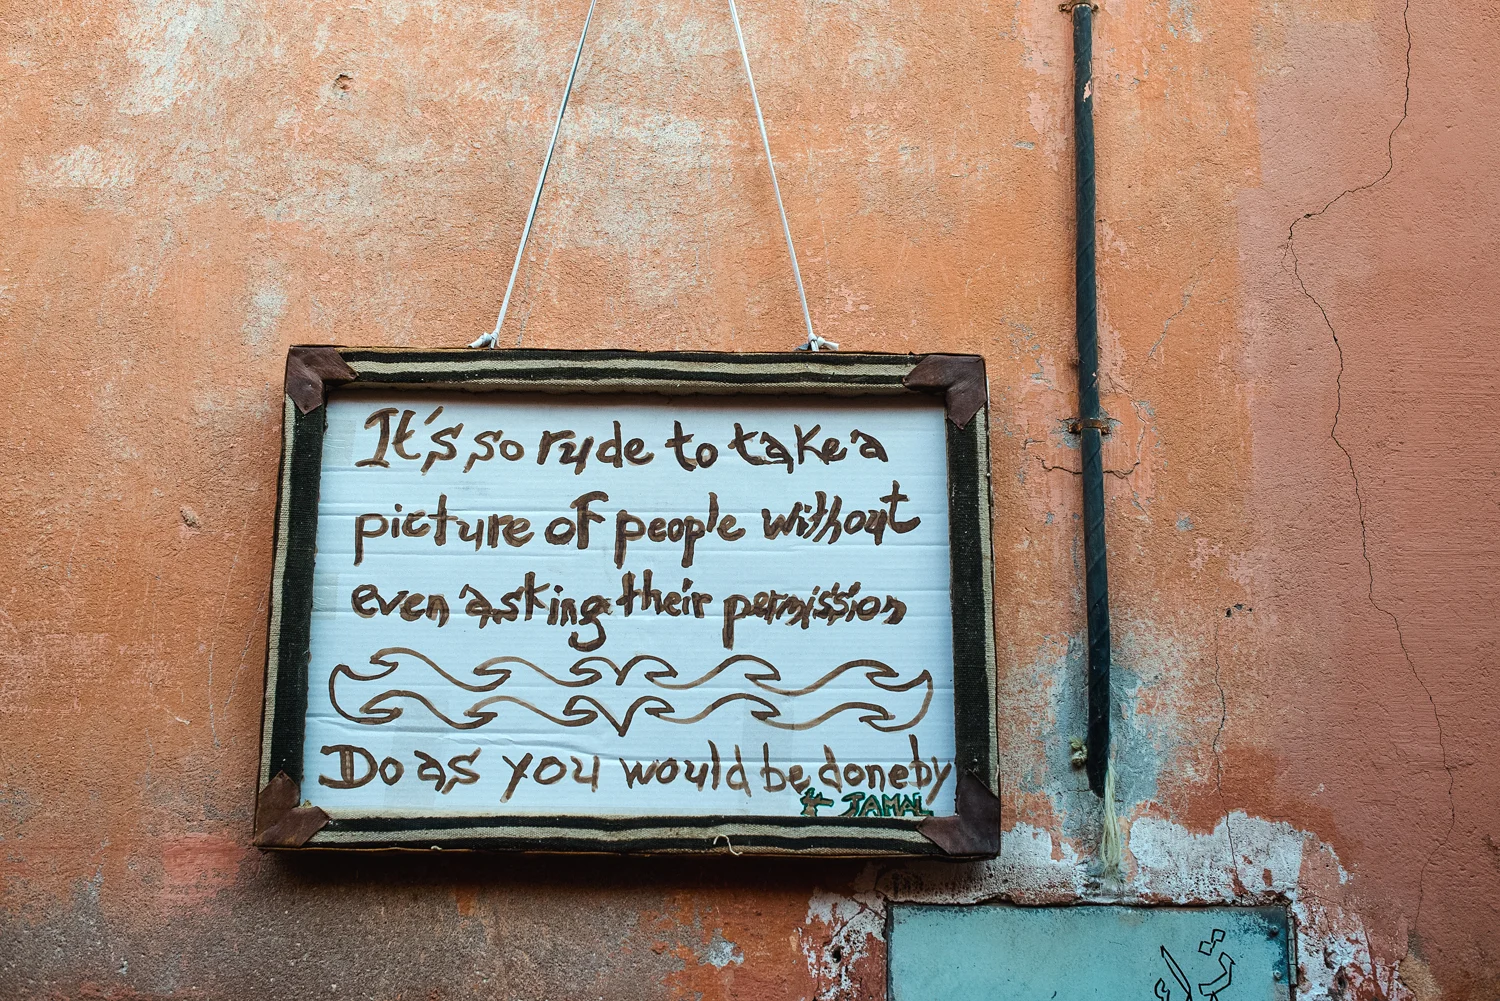 It's so rude to take a
picture of people without
even asking their permission
Do as you would be done by
JAMAL